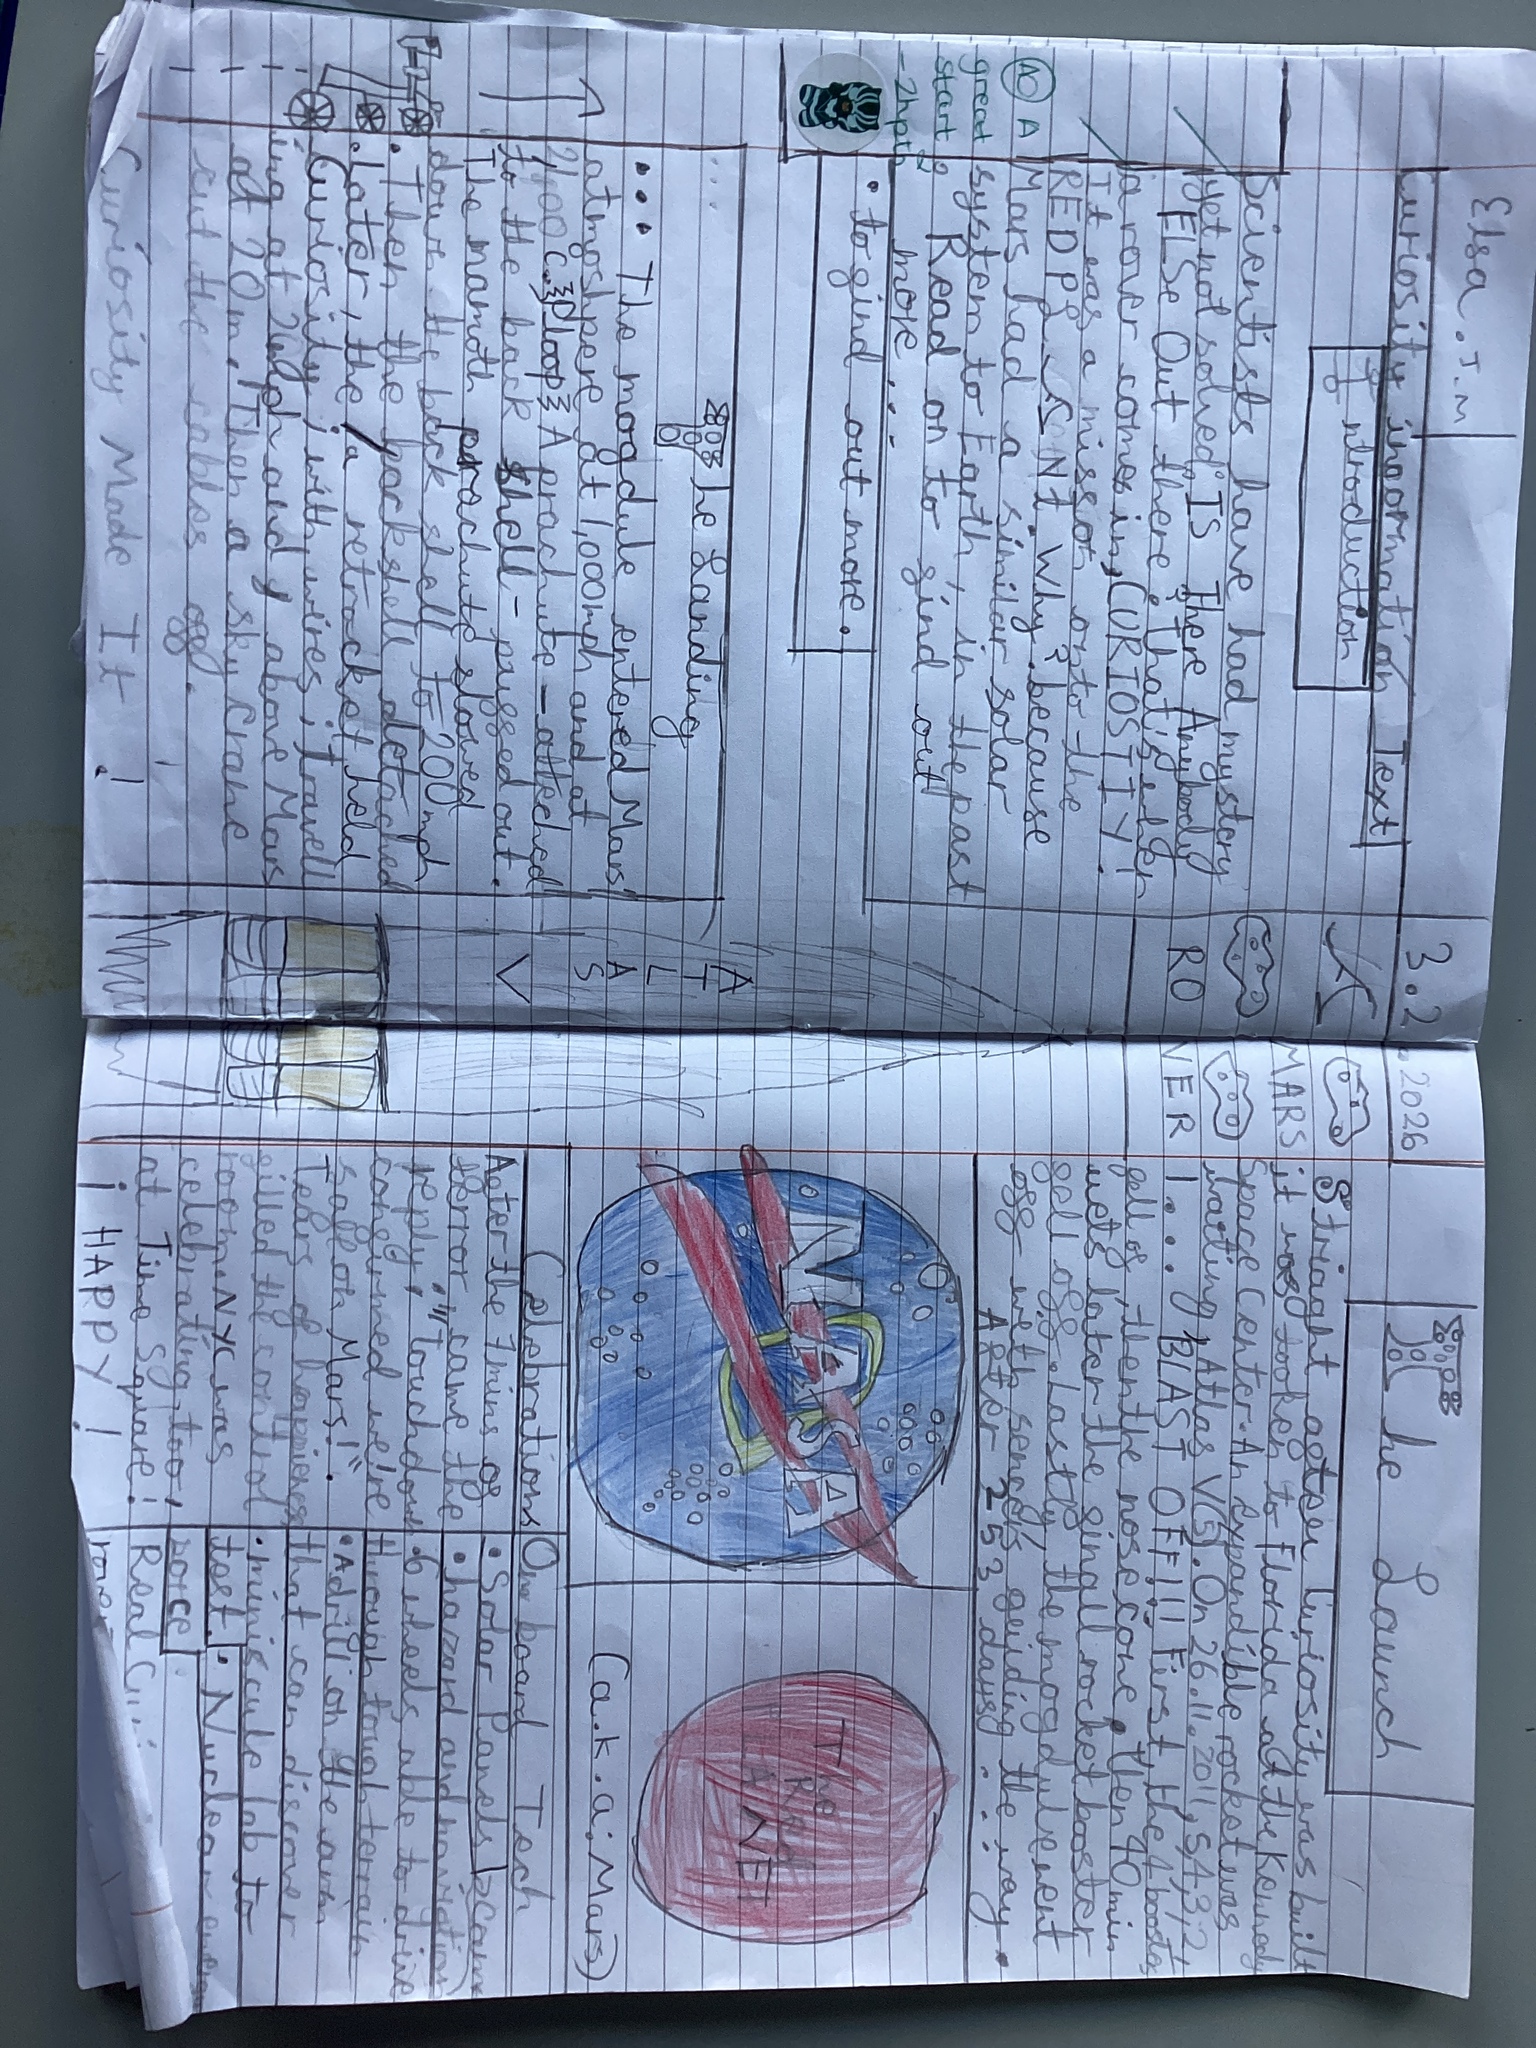 Elsa.J.M
3.2.2026
Curiosity inoormation Text
introduction
Scientists have had mystery
yet not solved, IS There Anybody
ELSe Out there? that's when
a rover comes in, CURIOSTIY!
It was a misson onto the
RED
Mars had a similar solar
system to Earth, in the past
Read on to gind out
more...
• to gind out more.
AO A
great
start
MARS
ROVER
The Landing
... The mogdule entered Mars'
atmoshpere at 1,000mph and at
2100°C. Ploop A prachute - attached
to the back shell - pugged out.
The mamoth prachute slowed
down the back shell to 200mph
. Then the backshell detached
later, the a retrocket held
Curiosity, with wires, travell
ing at 2mph and, above Mars
at 20m. Then a sky crane
cut the cables ogg.
Curiosity Made It!
ATLAS
V
The Launch
Striaght agter Curiosity was built
it was tooken to Florida at the Kennedy
Space Center. An Expandible rocket was
waiting, Atlas V(5). On 26.11.2011, 5,4,3,2,
1... BLAST OFF!!! First, the 4 boosters
gell og, then the nose cone. Then 40 min
uets later the singal rocket booster
gell ogg. Lastly, the mogdule went
ogg with sencers geiding the way.
After 253 days...
NASA
The
Red
PLANET
(a.k.a: Mars)
Celebrations
Agter the 7mins og
terror, came the
reply, "Touchdown
congirmed we're
sage on Mars!".
Tears of happiness
gilled the control
room. NYC was
celebrating too,
at Time square!
¡ HAPPY !
On board Tech
• Solar Panels
• hazard and navigation)
• 6 wheels able to drive
through tough terrain
• A drill on the arm
that can discover
• miniscule lab to
test
• Nuclear